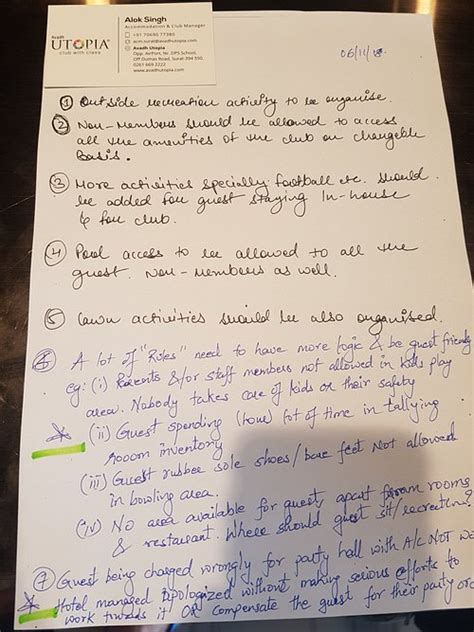 Avadh
UTOPIA
Club with class
Alok Singh
Accommodation & Club Manager
+91 70690 77385
Avadh Utopia
Opp. Airport, Nr. DPS School,
Off Dumas Road, Surat 394 550,
0261 669 2222
www.avadhutopia.com
06/11/18.
① Outside recreation activity to be organise.
② Non-Members should be allowed to access
all the amenities of the club on chargeble
Basis.
③ More activities specially football etc. should
be added for guest staying In-house
& for club.
④ Pool access to be allowed to all the
guest. Non-members as well.
⑤ Lawn activities should be also organised.
⑥ A lot of "Rules" need to have more logic & be guest friendly
eg: (i) Parents &/or staff members not allowed in kids play
area. Nobody takes care of kids or their safety
(ii) Guest spending (hour) lot of time in tallying
room inventory
(iii) Guest rubber sole shoes/bare feet Not allowed
in bowling area.
(iv) No area available for guest, apart from rooms
& restaurant. Where should guest sit/recreation
⑦ Guest being charged wrongly for party hall with A/c Not wo
Hotel managed Apologized without making serious efforts to
work towards it OR compensate the guest for their party or